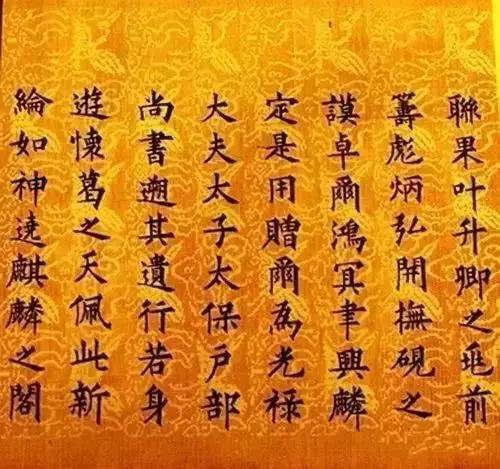 聯果叶升卿之兆前
籌彪炳弘開撫硯之
謨卓爾鴻冥聿興麟
定是用贈爾為光祿
大夫太子太保戶部
尚書遡其遺行若身
遊懷葛之天佩此新
綸如神遶麒麟之閣